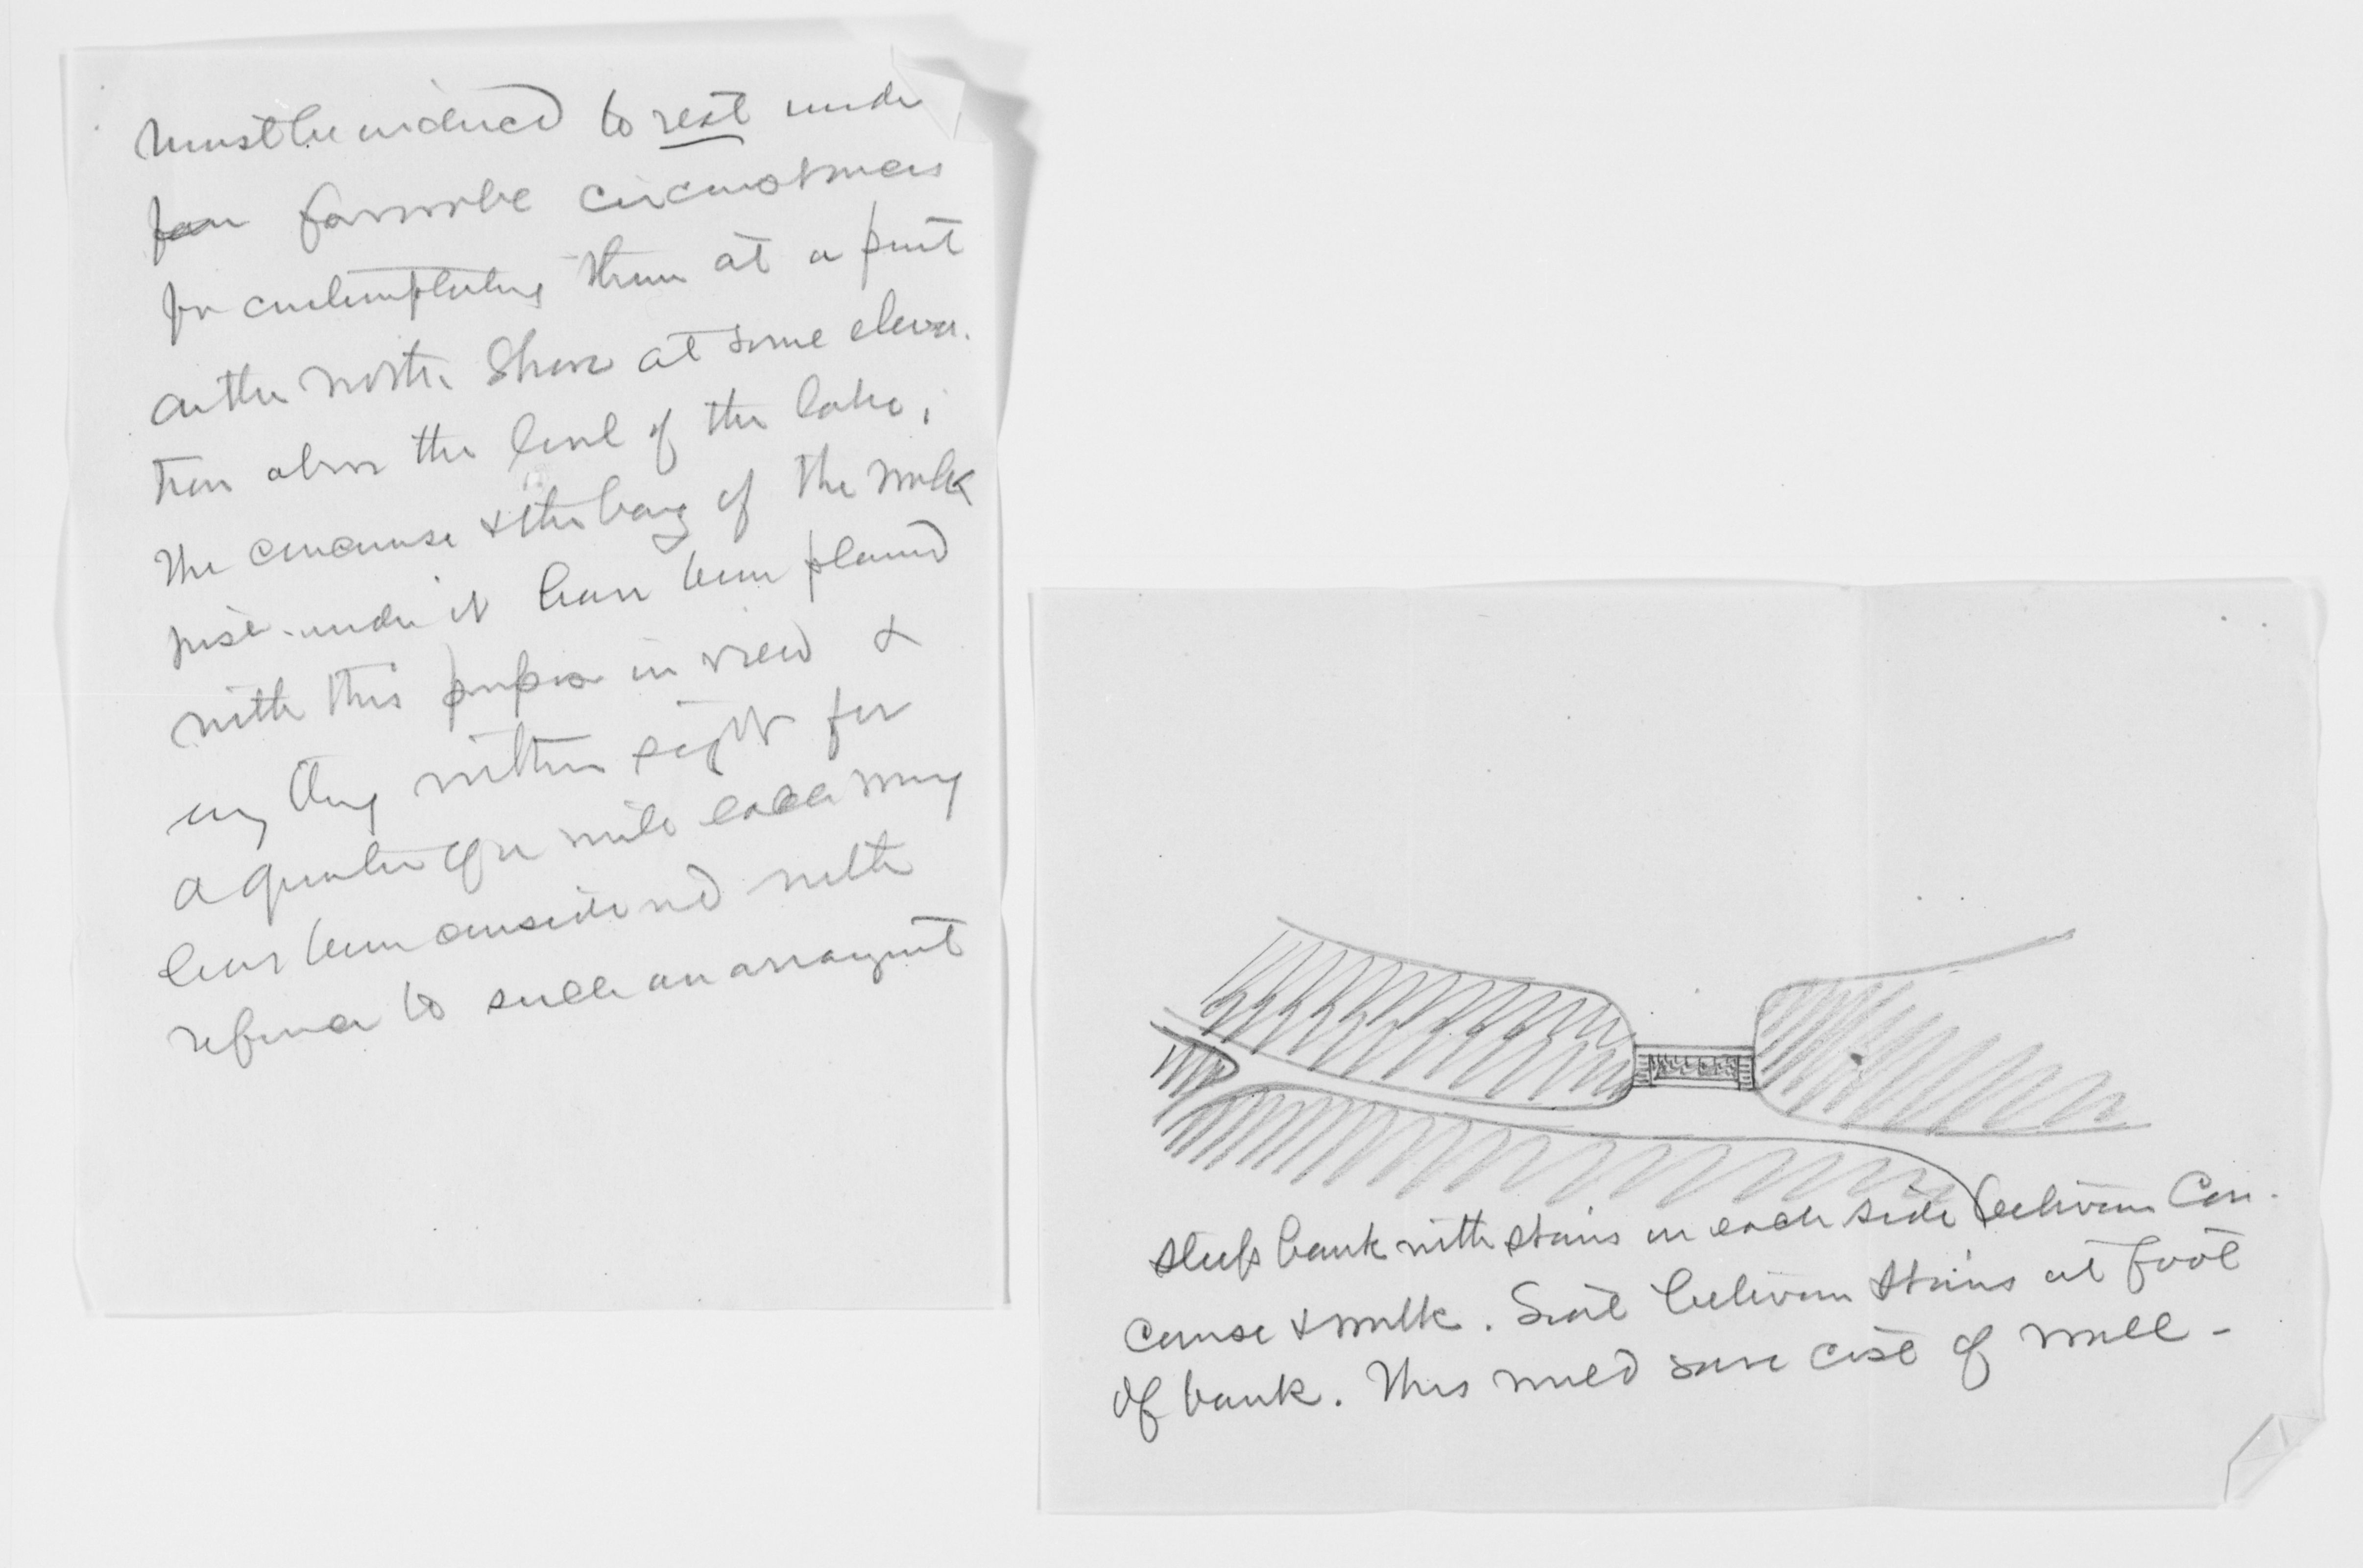 must be induced to rest under
favorable circumstances
for contemplating them at a point
on the north shore at some eleva-
tion above the level of the lake.
The concourse & the bay of the walk
just under it have been planned
with this purpose in view &
every thing within sight for
a quarter of a mile each way
have been considered with
reference to such an arrangement
Steep bank with stairs on each side between Con-
course & walk. Seat between stairs at foot
of bank. This would save cost of wall -